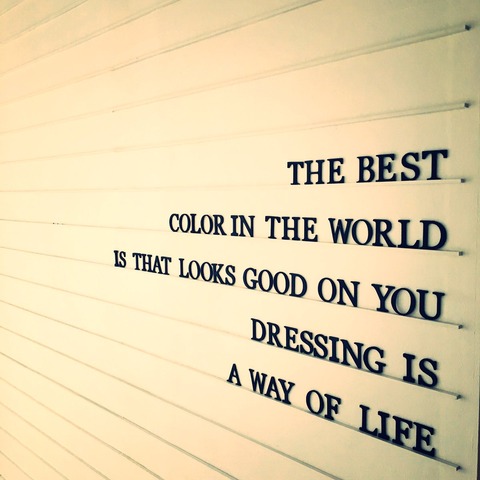 THE BEST
COLOR IN THE WORLD
IS THAT LOOKS GOOD ON YOU
DRESSING IS
A WAY OF LIFE